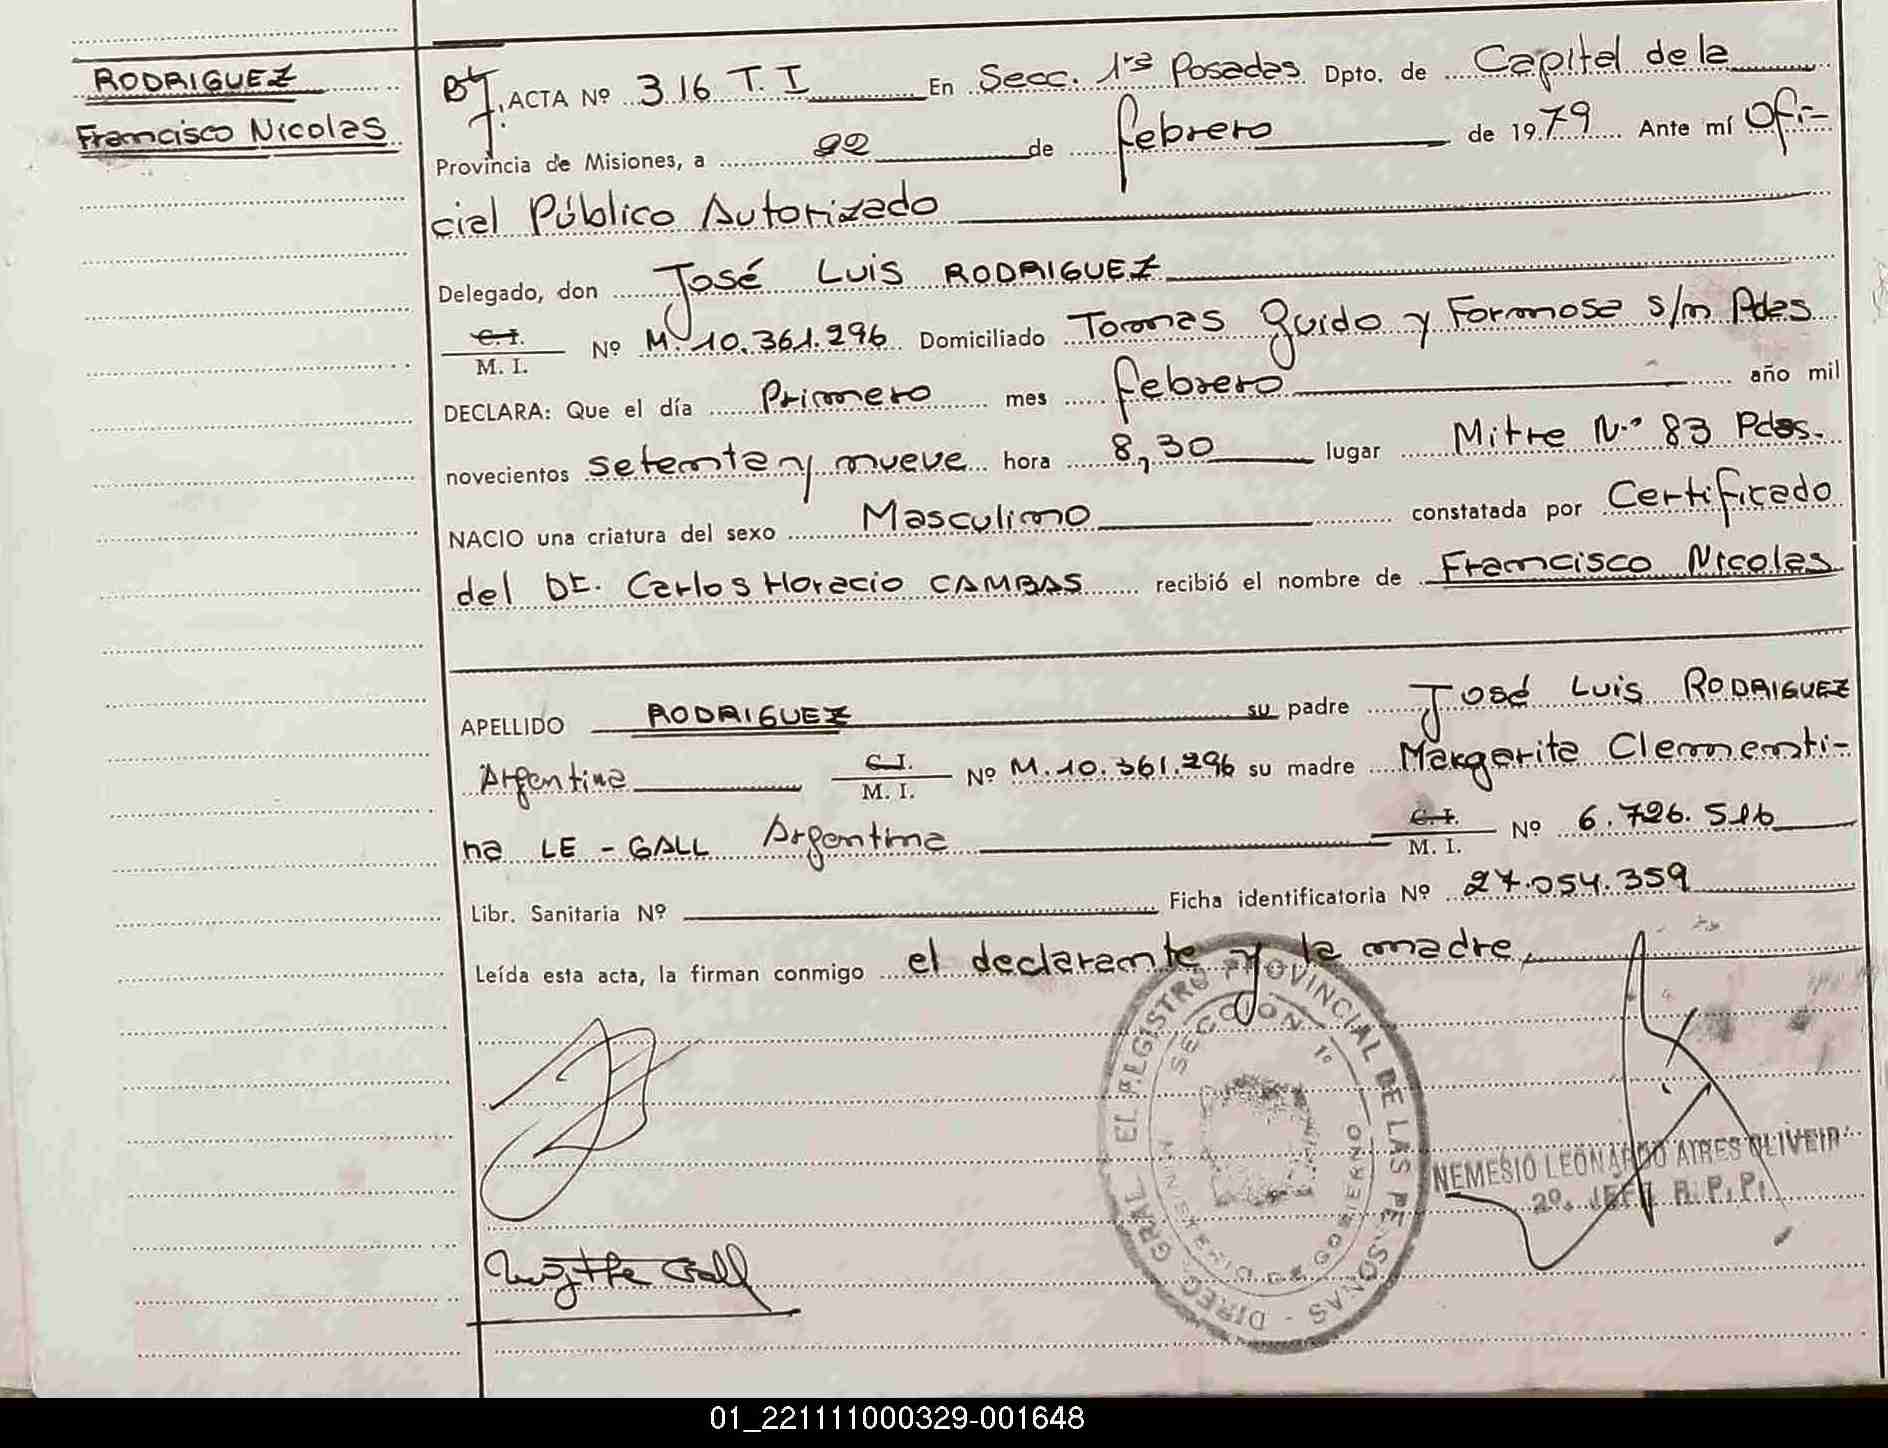 RODRIGUEZ
Francisco Nicolas
ACTA Nº 316 T. I En Secc. 1ra Posadas Dpto. de Capital de la
Provincia de Misiones, a 22 de febrero de 1979 Ante mí Ofi-
cial Público Autorizado
Delegado, don José Luis RODRIGUEZ
C.I.
M. I. Nº M. 10.361.296 Domiciliado Tomas Guido y Formosa s/n Pdas
DECLARA: Que el día Primero mes febrero año mil
novecientos setenta y nueve hora 8,30 lugar Mitre N.º 83 Pdas.
NACIO una criatura del sexo Masculino constatada por Certificado
del Dr. Carlos Horacio CAMBAS recibió el nombre de Francisco Nicolas
APELLIDO RODRIGUEZ su padre José Luis RODRIGUEZ
Argentina C.I.
M. I. Nº M. 10.361.296 su madre Margarita Clementi-
na LE-GALL Argentina C.I.
M. I. Nº 6.726.516
Libr. Sanitaria Nº Ficha identificatoria Nº 27.054.359
Leída esta acta, la firman conmigo el declarante y la madre,
DIREC. GRAL. DEL REGISTRO PROVINCIAL DE LAS PERSONAS
SECCION 1º
MINISTERIO DE GOBIERNO
NEMESIO LEONARDO AIRES OLIVEIR
2º. JEFE R. P. P.
01_221111000329-001648